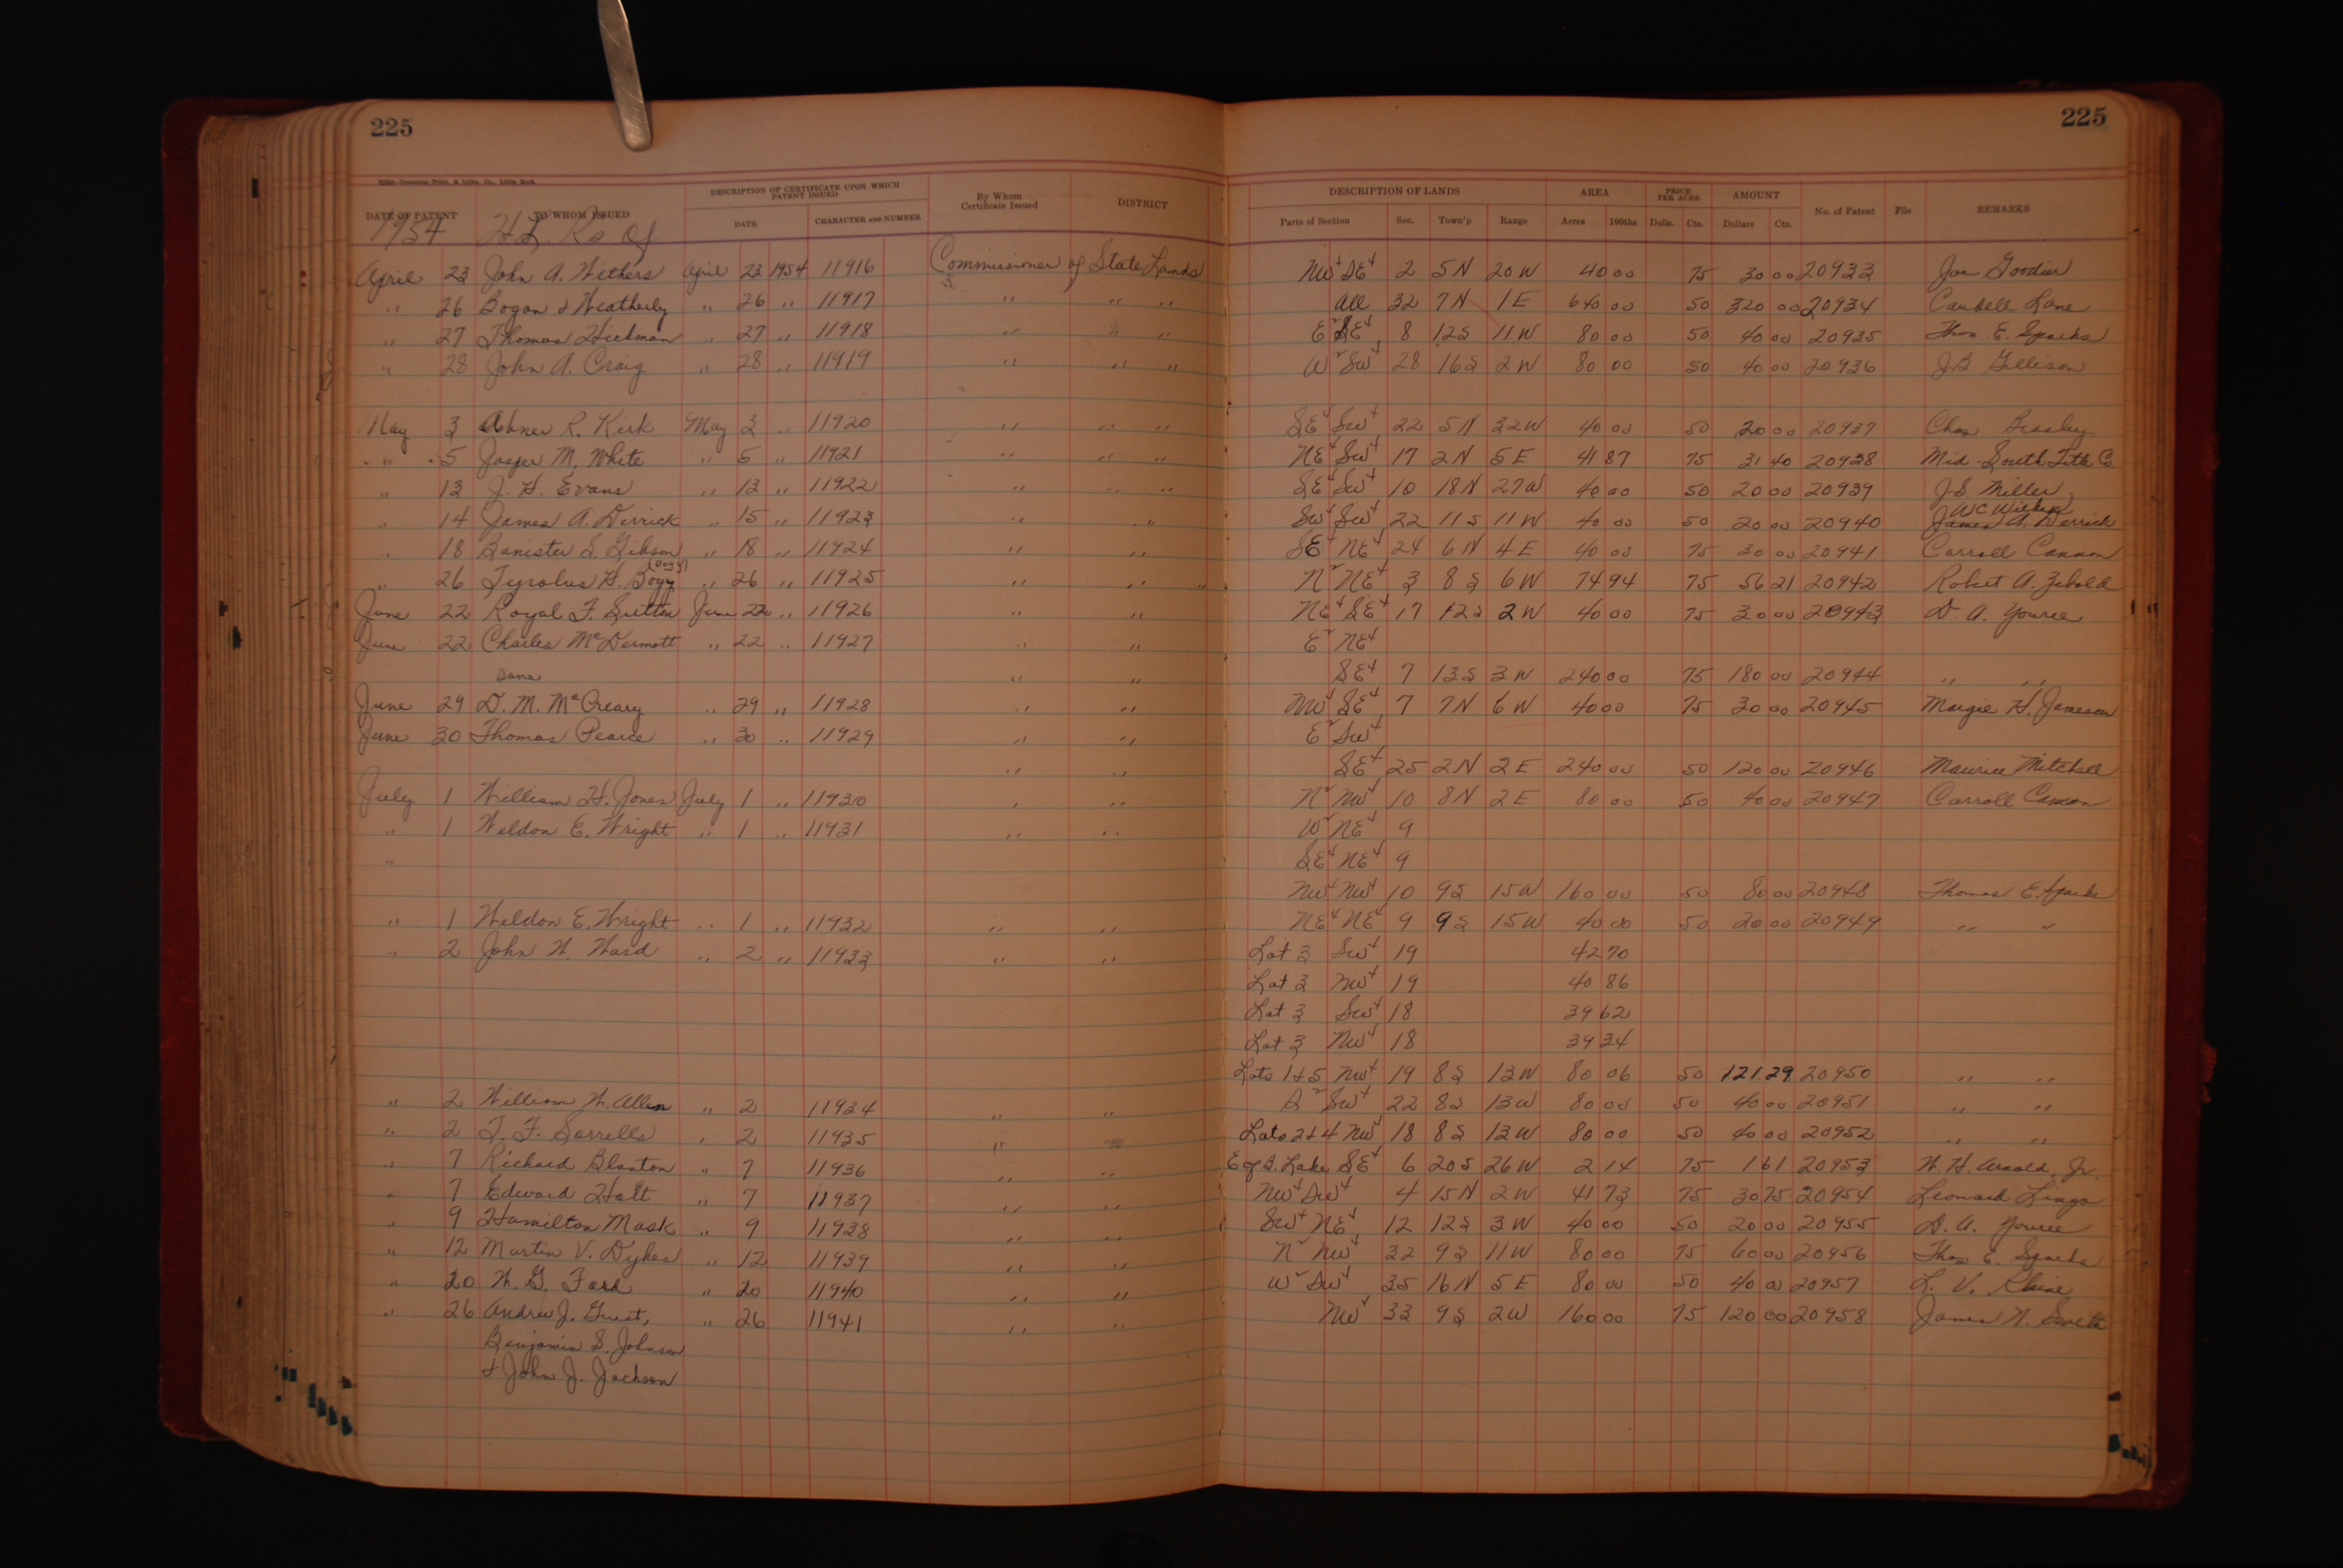 225
225
2252—Democrat Print. & Litho. Co., Little Rock
DATE OF PATENT TO WHOM ISSUED DESCRIPTION OF CERTIFICATE UPON WHICH PATENT ISSUED DATE CHARACTER AND NUMBER By Whom Certificate Issued DISTRICT DESCRIPTION OF LANDS Parts of Section Sec. Town'p Range AREA Acres 100ths PRICE PER ACRE Dolls. Cts. AMOUNT Dollars Cts. No. of Patent File REMARKS
1954 H L Rs of
April 23 John A. Withers April 23 1954 11916 Commissioner of State Lands NW4 SE4 2 5N 20W 40 00 75 30 00 20933 Joe Goodier
" 26 Bogan & Weatherly " 26 " 11917 " " " All 32 7N 1E 640 00 50 320 00 20934 Caubell Lane
" 27 Thomas Hickman " 27 " 11918 " " " E2 SE4 8 12S 11W 80 00 50 40 00 20935 Thos E. Sparks
" 28 John A. Craig " 28 " 11919 " " " W2 SW4 28 16S 2W 80 00 50 40 00 20936 J.B. Gillison
May 3 Abner R. Kirk May 3 " 11920 " " " SE4 SW4 22 5N 32W 40 00 50 20 00 20937 Chas Beasley
" 5 Jasper M. White " 5 " 11921 " " " NE4 SW4 17 2N 5E 41 87 75 31 40 20938 Mid South Title Co
" 13 J. H. Evans " 13 " 11922 " " " SE4 SW4 10 18N 27W 40 00 50 20 00 20939 J.S. Miller,
" 14 James A. Derrick " 15 " 11923 " " SW4 SW4 22 11S 11W 40 00 50 20 00 20940 James A. Derrick
" 18 Banister S. Gibson " 18 " 11924 " " SE4 NE4 24 6N 4E 40 00 75 30 00 20941 Carroll Cannon
(Bogy)
" 26 Tyrolus H. Bogy " 26 " 11925 " " " N2 NE4 3 8S 6W 74 94 75 56 21 20942 Robert A. Zebold
June 22 Royal F. Sutton June 22 " 11926 " " NE4 SE4 17 12S 2W 40 00 75 30 00 20943 D A. Youree
June 22 Charles McDermott " 22 " 11927 " " E2 NE4
Same " " SE4 7 13S 3W 240 00 75 180 00 20944 " "
June 29 D. M. McCreary " 29 " 11928 " " NW4 SE4 7 7N 6W 40 00 75 30 00 20945 Margie H. Jameson
June 30 Thomas Pearce " 30 " 11929 " " E2 SW4
" " SE4 25 2N 2E 240 00 50 120 00 20946 Maurice Mitchell
July 1 William H. Jones July 1 " 11930 " " N2 NW4 10 8N 2E 80 00 50 40 00 20947 Carroll Cannon
" 1 Weldon E. Wright " 1 " 11931 " " W2 NE4 9
" SE4 NE4 9
NW4 NW4 10 9S 15W 160 00 50 80 00 20948 Thomas E. Sparks
" 1 Weldon E. Wright " 1 " 11932 " " NE4 NE4 9 9S 15W 40 00 50 20 00 20949 " "
" 2 John W. Ward " 2 " 11933 " " Lot 3 SW4 19 42 70
Lot 3 NW4 19 40 86
Lot 3 SW4 18 39 62
Lot 3 NW4 18 39 34
Lots 1 & 5 NW4 19 8S 13W 80 06 50 121 29 20950 " "
" 2 William W. Allen " 2 11934 " " S2 SW4 22 8S 13W 80 00 50 40 00 20951 " "
" 2 T. F. Sorrells " 2 11935 " " Lots 2 & 4 NW4 18 8S 13W 80 00 50 40 00 20952 " "
" 7 Richard Blanton " 7 11936 " " E of S. Lake SE4 6 20S 26W 2 14 75 1 61 20953 W. H. Arnold, Jr.
" 7 Edward Holt " 7 11937 " " NW4 SW4 4 15N 2W 41 73 75 30 75 20954 Leonard Lingo
" 9 Hamilton Mask " 9 11938 " " SW4 NE4 12 12S 3W 40 00 50 20 00 20955 D. A. Youree
" 12 Martin V. Dykes " 12 11939 " " N2 NW4 32 9S 11W 80 00 75 60 00 20956 Thos E. Sparks
" 20 W. G. Ford " 20 11940 " " W2 SW4 35 16N 5E 80 00 50 40 00 20957 L. V. Rhine
" 26 Andrew J. Guest, " 26 11941 " " NW4 33 9S 2W 160 00 75 120 00 20958 James W. Smith
Benjamin S. Johnson
& John J. Jackson